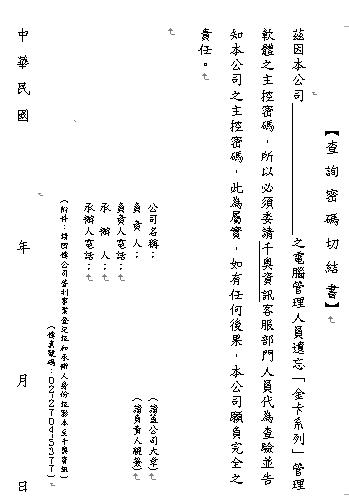 【查詢密碼切結書】
茲因本公司　　　　　　　　　之電腦管理人員遺忘「金卡系列」管理
軟體之主控密碼，所以必須委請千奧資訊客服部門人員代為查驗並告
知本公司之主控密碼，此為屬實，如有任何後果，本公司願負完全之
責任。
公司名稱：　　　　　　（請蓋公司大章）
負責人：　　　　　　（請負責人親簽）
負責人電話：
承辦人：
承辦人電話：
（附件：請回傳公司營利事業登記証和承辦人身份証影本至千奧資訊）
（傳真號碼：02-2704-5377）
中華民國　　　　　年　　　　　月　　　　　日